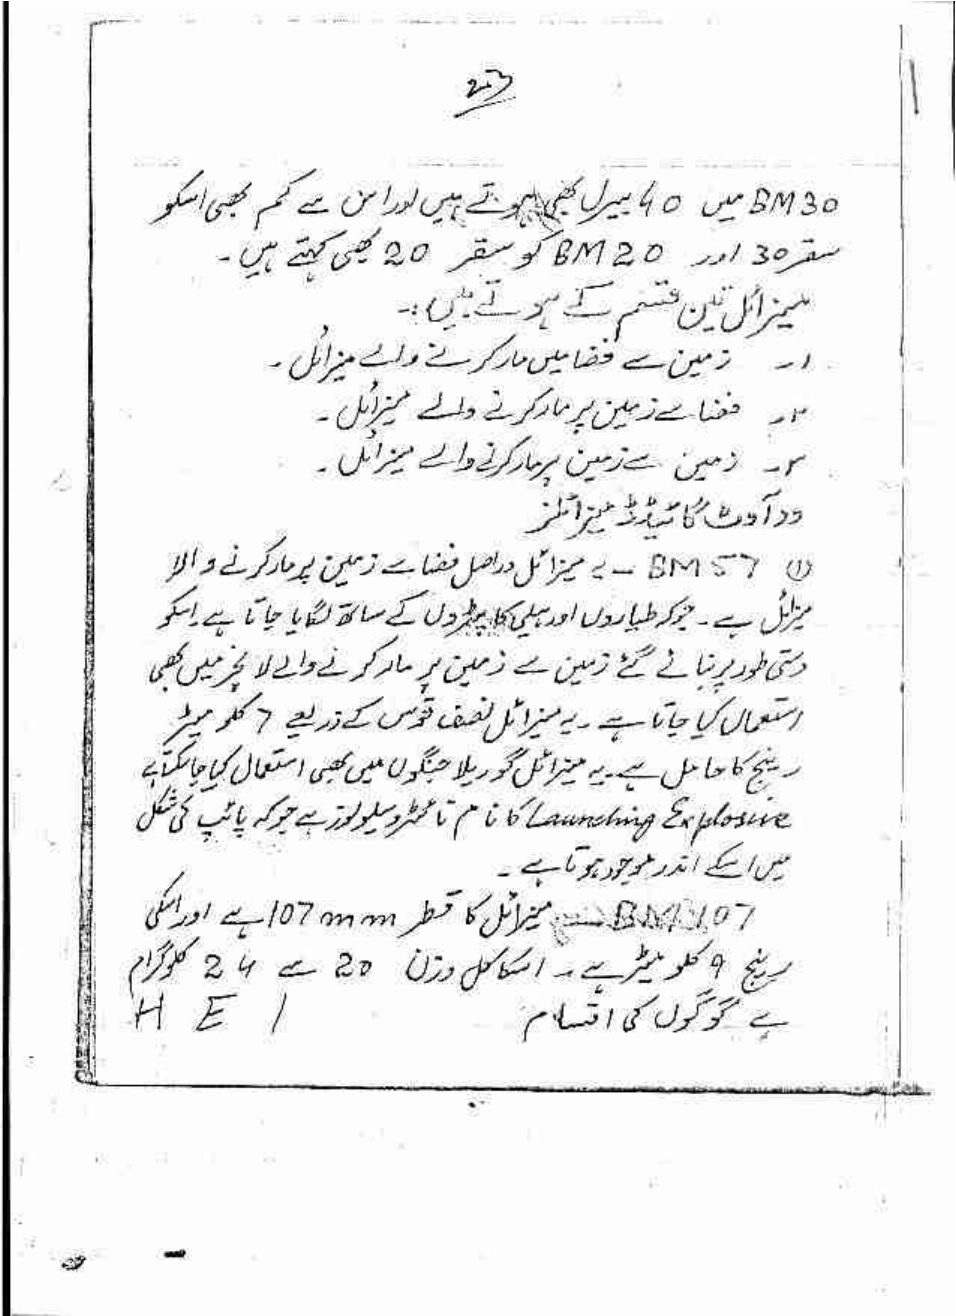 ۲۰۳
BM30 میں 40 بیرل بھی ہوتے ہیں اور اس سے کم بھی اسکو
سقر 30 اور BM20 کو سقر 20 بھی کہتے ہیں۔
میزائل تین قسم کے ہوتے ہیں:۔
۱۔ زمین سے فضا میں مار کرنے والے میزائل۔
۲۔ فضا سے زمین پر مار کرنے والے میزائل۔
۳۔ زمین سے زمین پر مار کرنے والے میزائل۔
ودآوٹ گائیڈڈ میزائلز
(۱) BM57 ۔ یہ میزائل دراصل فضا سے زمین پر مار کرنے والا
میزائل ہے۔ جوکہ طیاروں اور ہیلی کاپٹروں کے ساتھ لگایا جاتا ہے۔ اسکو
دستی طور پر بنائے گئے زمین سے زمین پر مار کرنے والے لانچر میں بھی
استعمال کیا جاتا ہے۔ یہ میزائل نصف قوس کے ذریعے 7 کلو میٹر
رینج کا حامل ہے۔ یہ میزائل گوریلا جنگوں میں بھی استعمال کیا جاسکتا ہے
Launching Explosive کا نام نائٹروسیلولوز ہے جوکہ پائپ کی شکل
میں اسکے اندر موجود ہوتا ہے۔
BM107 میزائل کا قطر 107mm ہے اور اسکی
رینج 9 کلو میٹر ہے۔ اسکا کل وزن 20 سے 24 کلوگرام
ہے گوگوں کی اقسام H E I